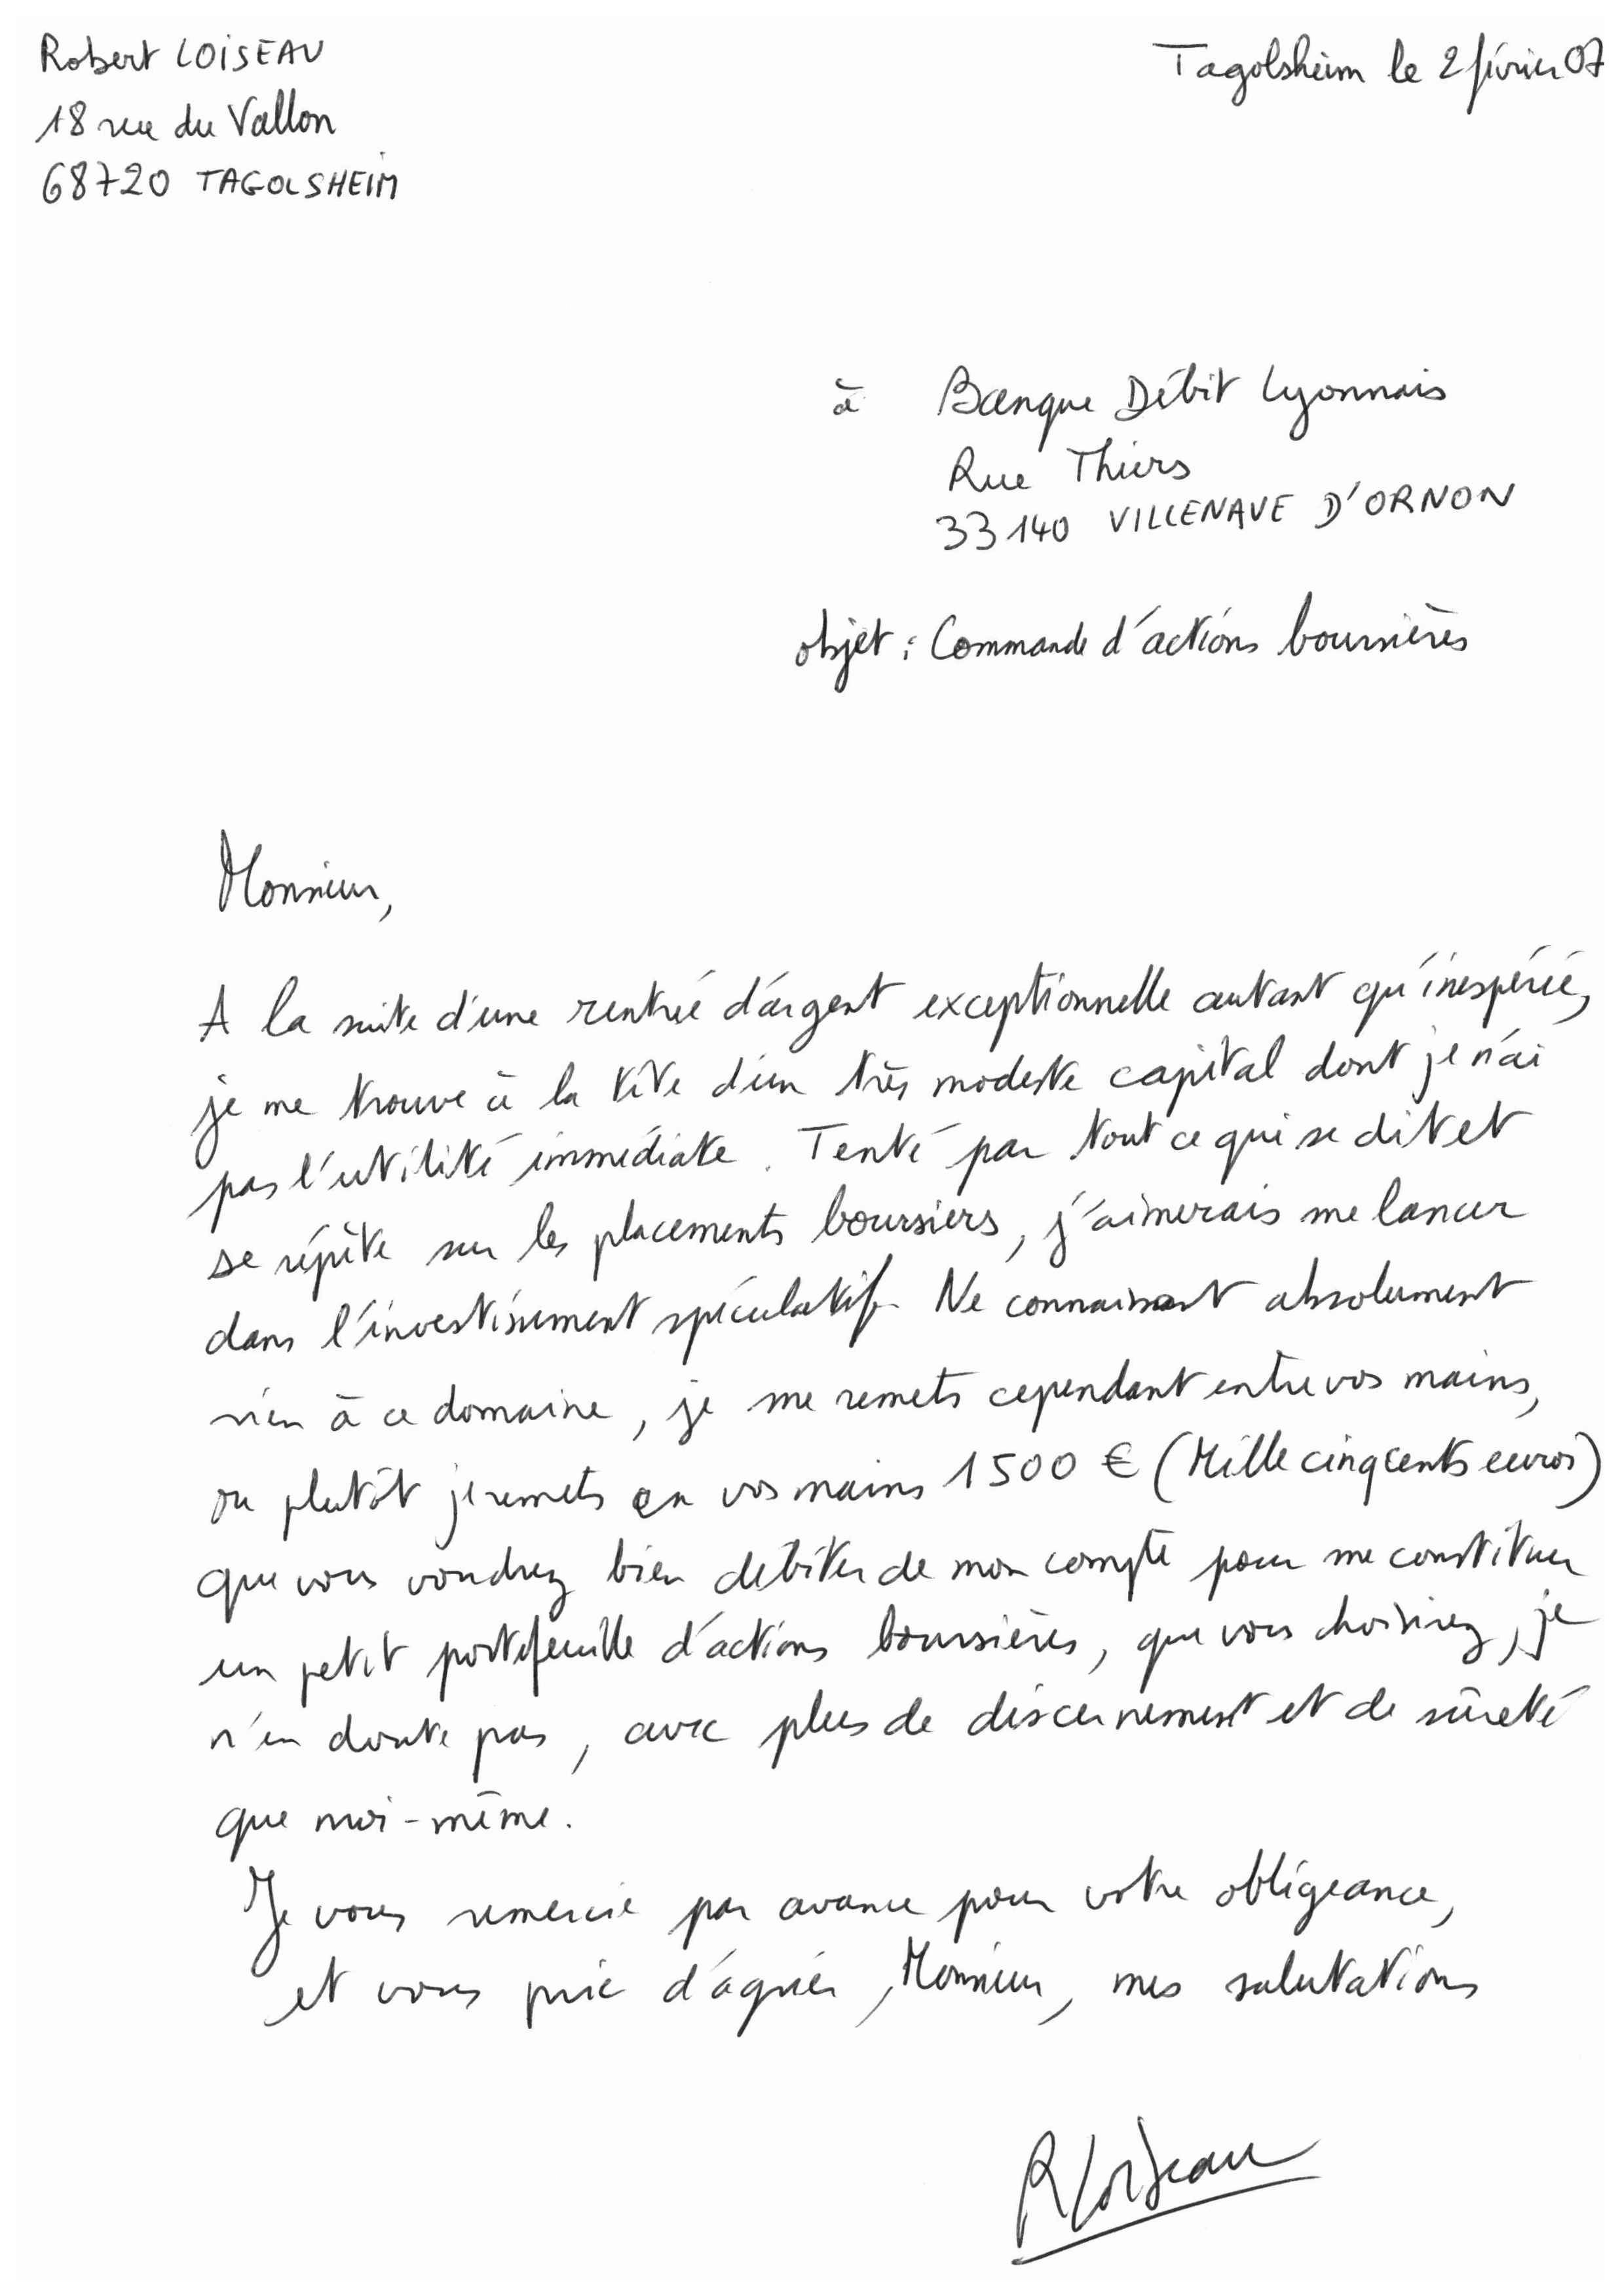 Robert LOISEAU
Tagolsheim le 2 février 07
18 rue du Vallon
68720 TAGOLSHEIM
à Banque Débit Lyonnais
Rue Thiers
33140 VILLENAVE D'ORNON
objet : Commande d'actions boursières
Monsieur,
A la suite d'une rentrée d'argent exceptionnelle autant qu'inespérée,
je me trouve à la tête d'un très modeste capital dont je n'ai
pas l'utilité immédiate. Tenté par tout ce qui se dit et
se répète sur les placements boursiers, j'aimerais me lancer
dans l'investissement spéculatif. Ne connaissant absolument
rien à ce domaine, je me remets cependant entre vos mains,
ou plutôt je remets en vos mains 1500 € (Mille cinq cents euros)
que vous voudrez bien débiter de mon compte pour me constituer
un petit portefeuille d'actions boursières, que vous choisirez, je
n'en doute pas, avec plus de discernement et de sûreté
que moi-même.
Je vous remercie par avance pour votre obligeance,
et vous prie d'agréer, Monsieur, mes salutations
R Loiseau